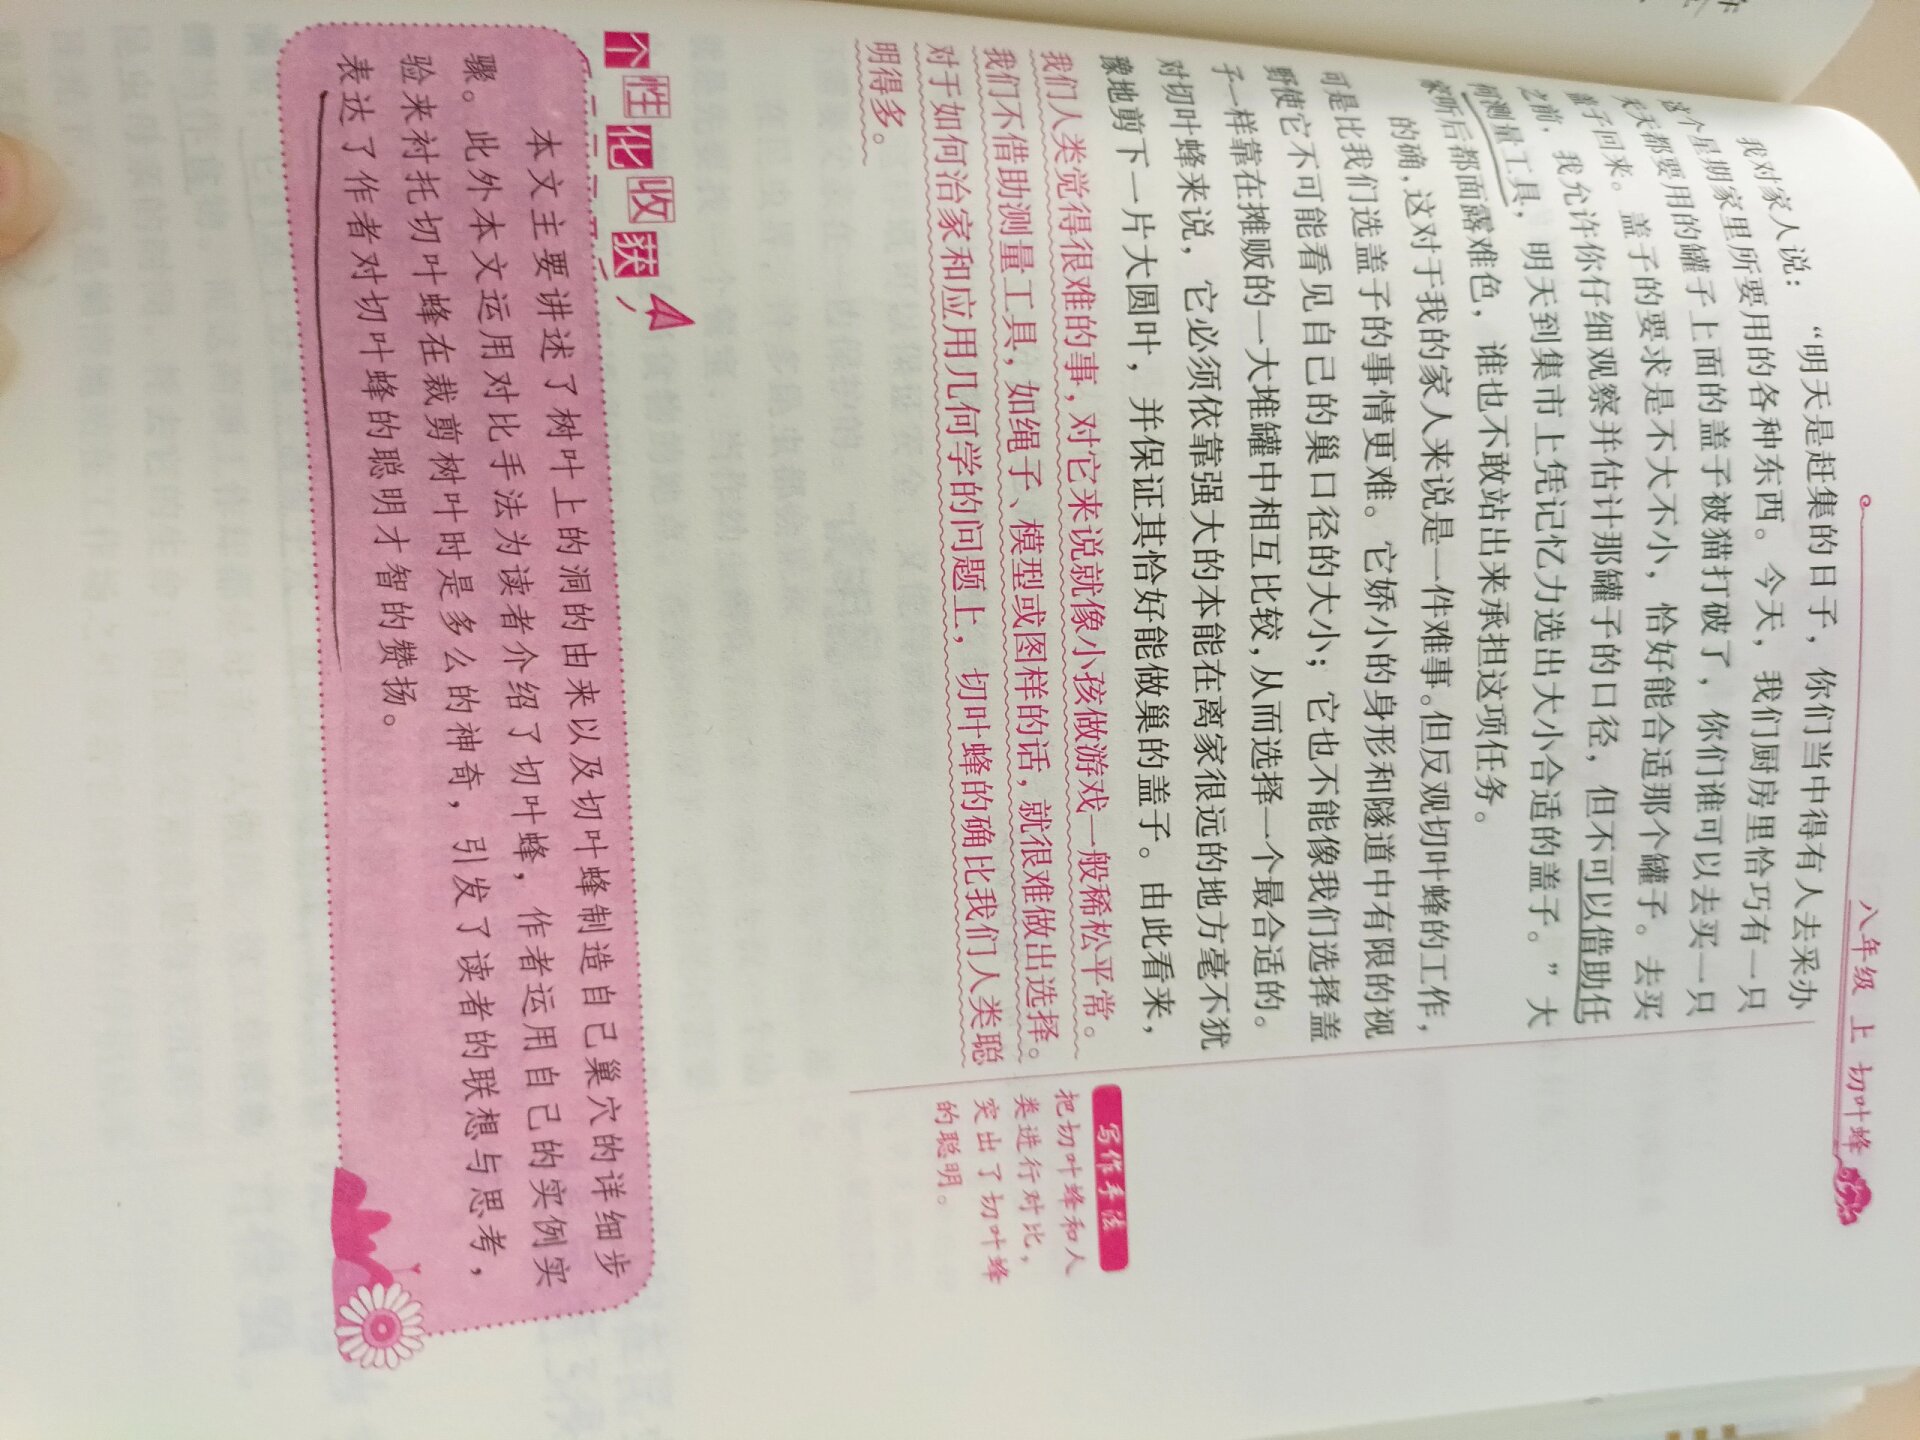 八年级 上 切叶蜂
我对家人说：
“明天是赶集的日子，你们当中得有人去采办
这个星期家里所要用的各种东西。今天，我们厨房里恰巧有一只
天天都要用的罐子上面的盖子被猫打破了，你们谁可以去买一只
盖子回来。盖子的要求是不大不小，恰好能合适那个罐子。去买
之前，我允许你仔细观察并估计那罐子的口径，但不可以借助任
何测量工具，明天到集市上凭记忆力选出大小合适的盖子。”大
家听后都面露难色，谁也不敢站出来承担这项任务。
的确，这对于我的家人来说是一件难事。但反观切叶蜂的工作，
可是比我们选盖子的事情更难。它娇小的身形和隧道中有限的视
野使它不可能看见自己的巢口径的大小；它也不能像我们选择盖
子一样靠在摊贩的一大堆罐中相互比较，从而选择一个最合适的。
对切叶蜂来说，它必须依靠强大的本能在离家很远的地方毫不犹
豫地剪下一片大圆叶，并保证其恰好能做巢的盖子。由此看来，
我们人类觉得很难的事，对它来说就像小孩做游戏一般稀松平常。
我们不借助测量工具，如绳子、模型或图样的话，就很难做出选择。
对于如何治家和应用几何学的问题上，切叶蜂的确比我们人类聪
明得多。
写作手法
把切叶蜂和人
类进行对比，
突出了切叶蜂
的聪明。
个性化收获
本文主要讲述了树叶上的洞的由来以及切叶蜂制造自己巢穴的详细步
骤。此外本文运用对比手法为读者介绍了切叶蜂，作者运用自己的实例实
验来衬托切叶蜂在裁剪树叶时是多么的神奇，引发了读者的联想与思考，
表达了作者对切叶蜂的聪明才智的赞扬。